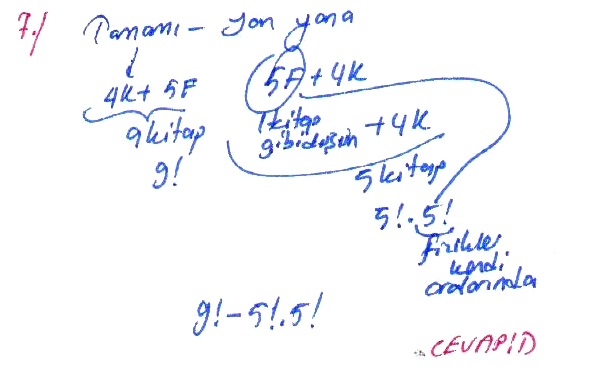 7./ Tamamı - Yan yana
4K + 5F
9 kitap
9!
5F + 4K
1 kitap
gibi düşün + 4K
5 kitap
5! . 5!
fizikler
kendi
aralarında
9! - 5!.5!
CEVAP D